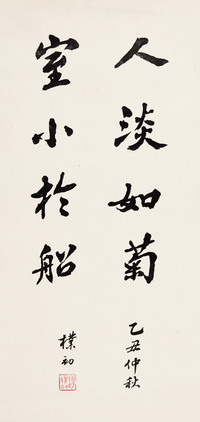 人淡如菊
乙丑仲秋
室小於船
樸初